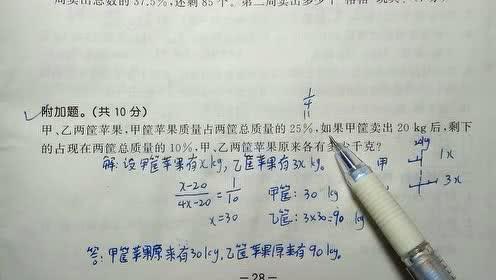 局卖出总数的37.5%,还剩85个。第二周卖出多少个
附加题。(共10分)
1/4
甲、乙两筐苹果,甲筐苹果质量占两筐总质量的25%,如果甲筐卖出20 kg后,剩下
的占现在两筐总质量的10%,甲、乙两筐苹果原来各有多少千克?
解:设甲筐苹果有xkg,乙筐苹果有3xkg。
20kg
甲 1x
x-20/4x-20 = 1/10 甲筐:30 kg
乙 3x
x=30 乙筐:3×30=90 kg
答:甲筐苹果原来有30kg,乙筐苹果原来有90kg。
— 28 —